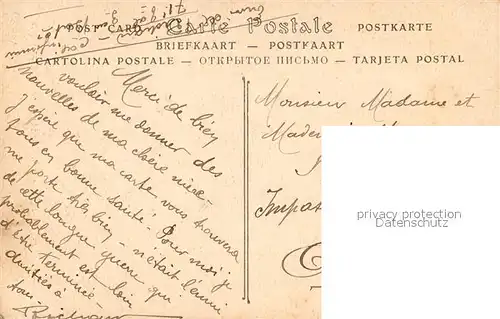 POST CARD Carte Postale POSTKARTE
BRIEFKAART — POSTKAART
CARTOLINA POSTALE — ОТКРЫТОЕ ПИСЬМО — TARJETA POSTAL
Merci de bien
vouloir me donner des
nouvelles de ma chère nièce –
J'espère que ma carte vous trouvera
tous en bonne santé. Pour moi je
me porte très bien – n'était l'ennui
de cette longue guerre qui
probablement est loin
d'être terminée –
Amitiés à
tous
Monsieur Madame et
Impas
privacy protection
Datenschutz